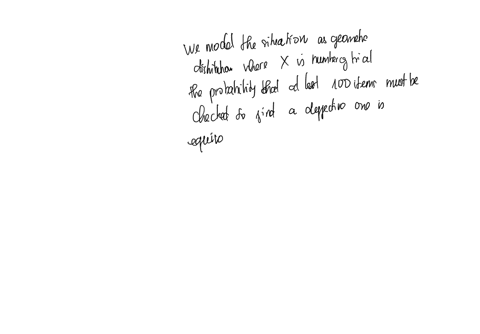 We model the situation as geometric
distribution where X is number of trial
the probability that at least 100 items must be
checked to find a deffective one is
equiva